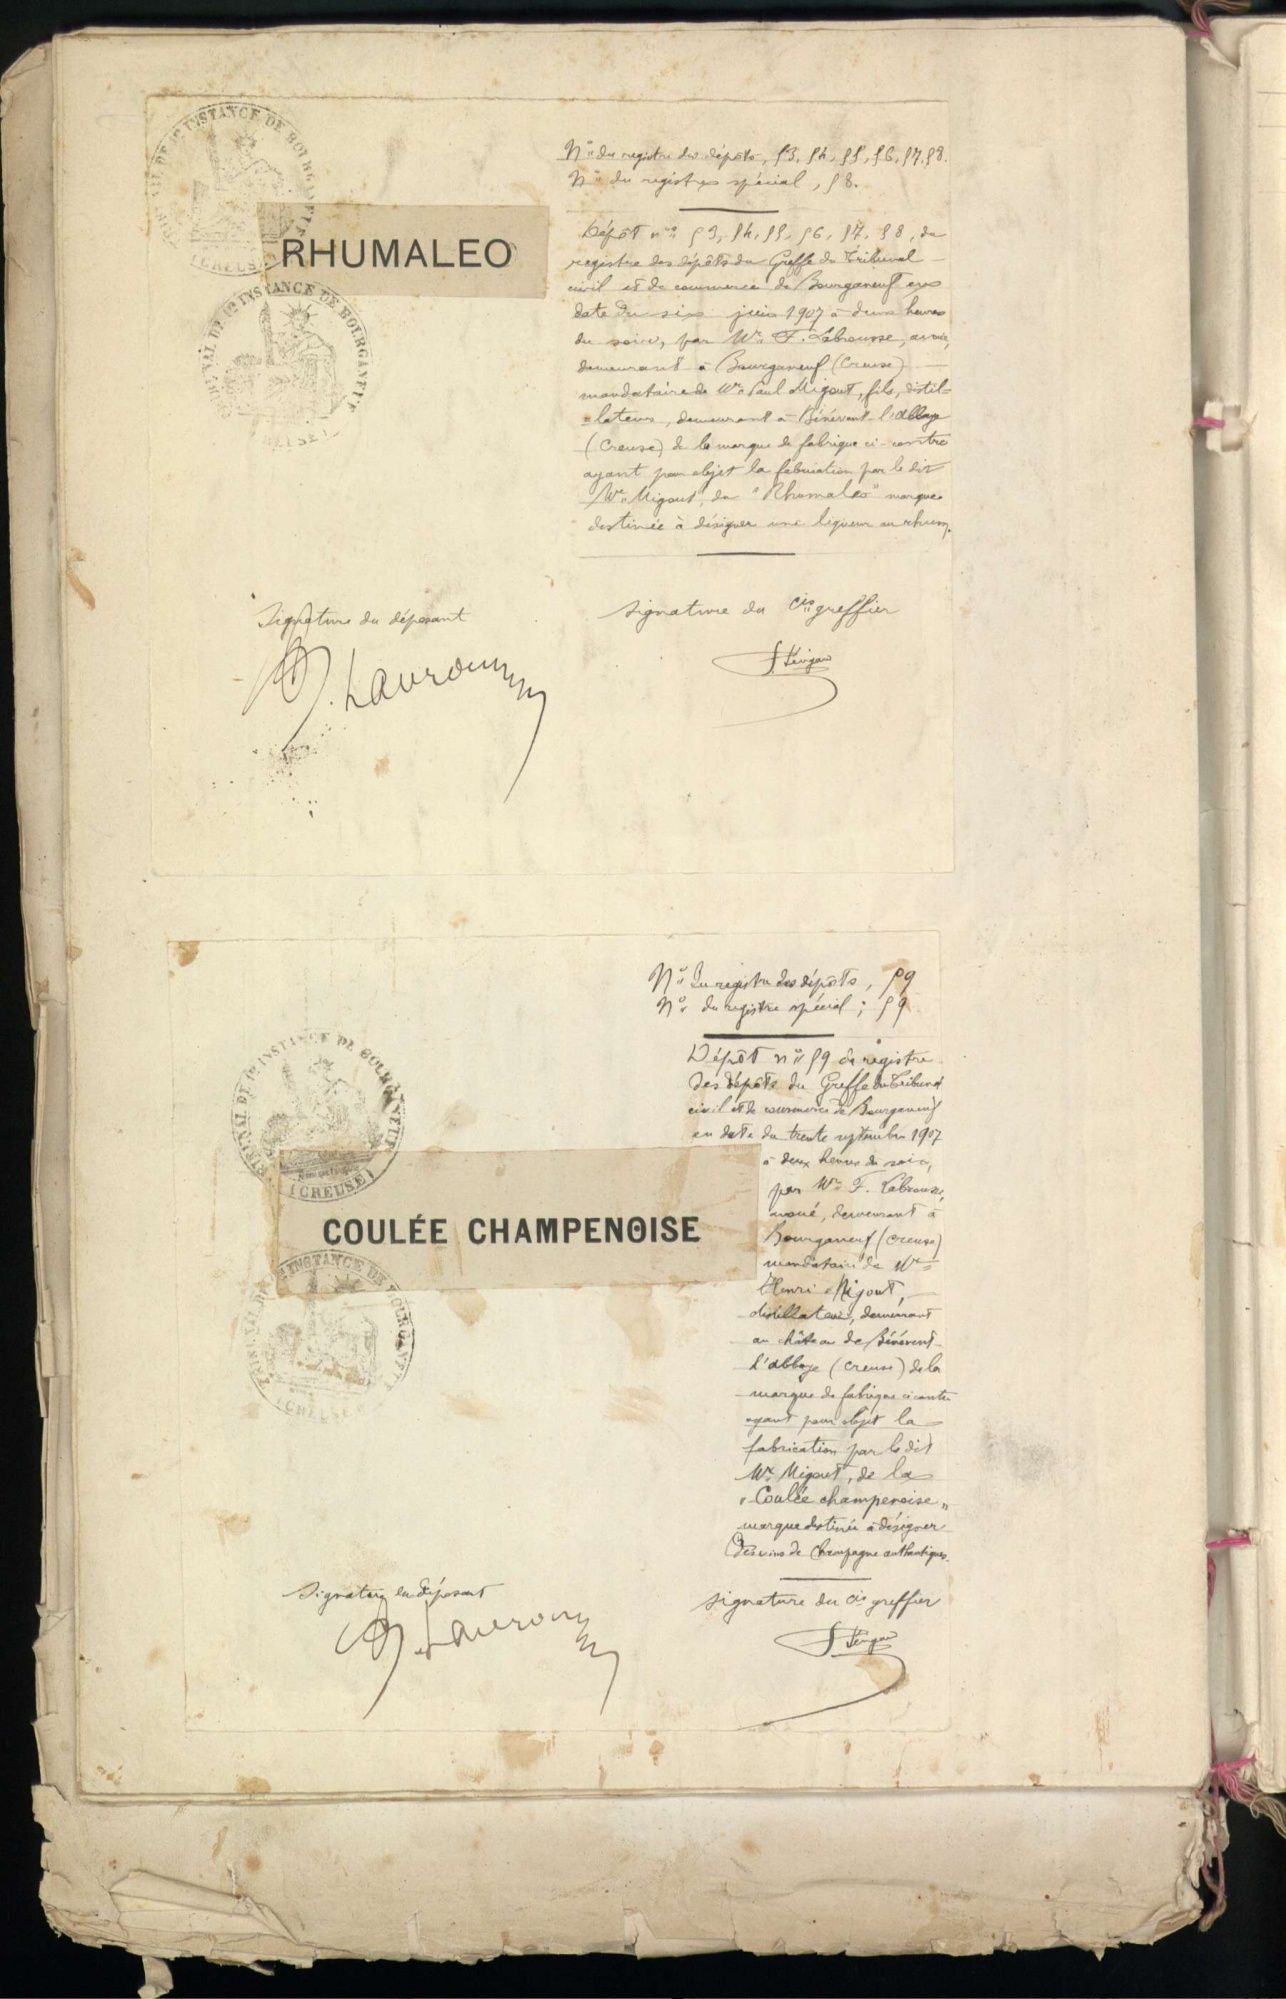 TRIBUNAL DE 1re INSTANCE DE BOURGANEUF
(CREUSE)
RHUMALEO
TRIBUNAL DE 1re INSTANCE DE BOURGANEUF
(CREUSE)
Nos du registre des dépôts, 53, 54, 55, 56, 57, 58.
No du registres spécial, 58.
Dépôt nos 53, 54, 55, 56, 57, 58, du
registre des dépôts du Greffe du Tribunal
civil et de commerce de Bourganeuf en
date du six juin 1907 à deux heures
du soir, par Me F. Labrousse, avoué,
demeurant à Bourganeuf (Creuse)
mandataire de Mr Paul Migout, fils, distil-
lateur, demeurant à Bénévent-l'Abbaye
(Creuse) de la marque de fabrique ci-contre
ayant pour objet la fabrication par le dit
Mr Migout, du "Rhumaleo" marque
destinée à désigner une liqueur au rhum.
Signature du déposant
signature du cis greffier
COULÉE CHAMPENOISE
TRIBUNAL DE 1re INSTANCE DE BOURGANEUF
(CREUSE)
TRIBUNAL DE 1re INSTANCE DE BOURGANEUF
(CREUSE)
No du registre des dépôts, 59
No du registre spécial; 59
Dépôt no 59 du registre
des dépôts du Greffe du Tribunal
civil et de commerce de Bourganeuf
en date du trente septembre 1907
à deux heures du soir,
par Me F. Labrousse,
avoué, demeurant à
Bourganeuf (Creuse)
mandataire de Mr
Henri Migout,
distillateur, demeurant
au château de Bénévent-
l'Abbaye (Creuse) de la
marque de fabrique ci contre
ayant pour objet la
fabrication par le dit
Mr Migout, de la
"Coulée champenoise"
marque destinée à désigner
des vins de Champagne authentiques.
Signature du déposant
signature du cis greffier